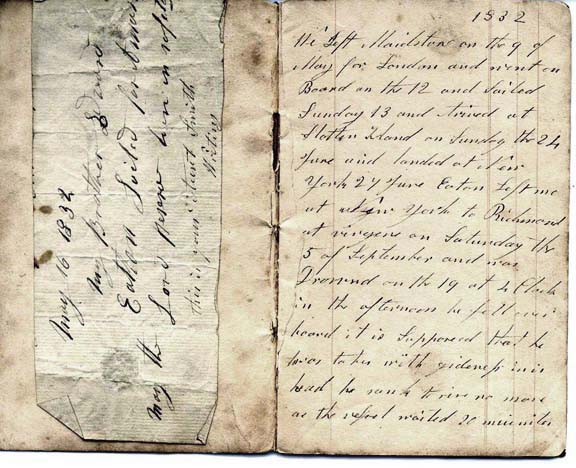 May 16 1832
my Brother Edward
Eaton Sailed for
may the Lord Preserve him in safety
this is your Aunt Smith
Writing
1832
We Left Maidston on the 9 of
May for London and went on
Board on the 12 and Sailed
Sunday 13 and Arived at
Statten Island on Sunday the 24
June and landed at New
York 27 June Eaton Left me
at New York to Richmond
at virgens on Saturday the
5 of September and was
Drownd on the 19 at 4 Clock
in the afternoon he fell over
board it is Supposed that he
was taken with gidenefs in is
head he sank to rise no more
as the vefsel waited 20 minuites